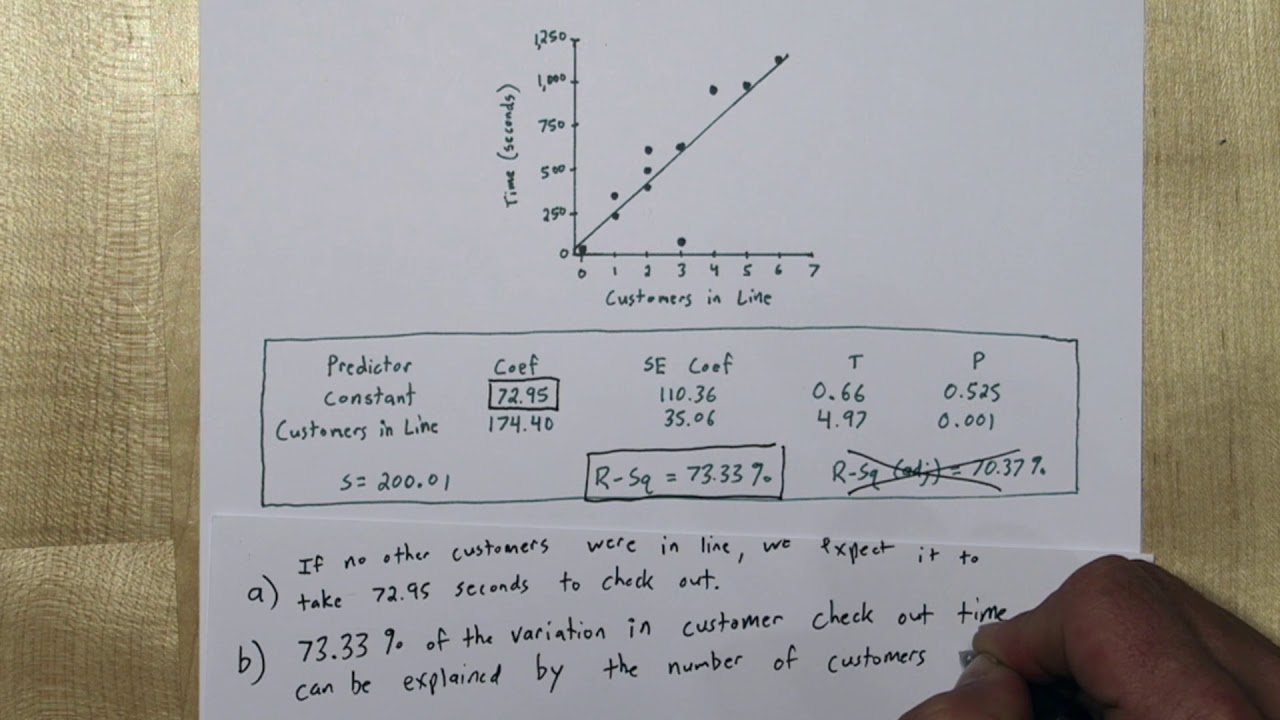 1,250
1,000
750
500
250
0
Time (seconds)
0 1 2 3 4 5 6 7
Customers in Line
Predictor Coef SE Coef T P
Constant 72.95 110.36 0.66 0.525
Customers in Line 174.40 35.06 4.97 0.001
S = 200.01 R-Sq = 73.33 % R-Sq (adj) = 70.37 %
a) If no other customers were in line, we expect it to
take 72.95 seconds to check out.
b) 73.33 % of the variation in customer check out time
can be explained by the number of customers